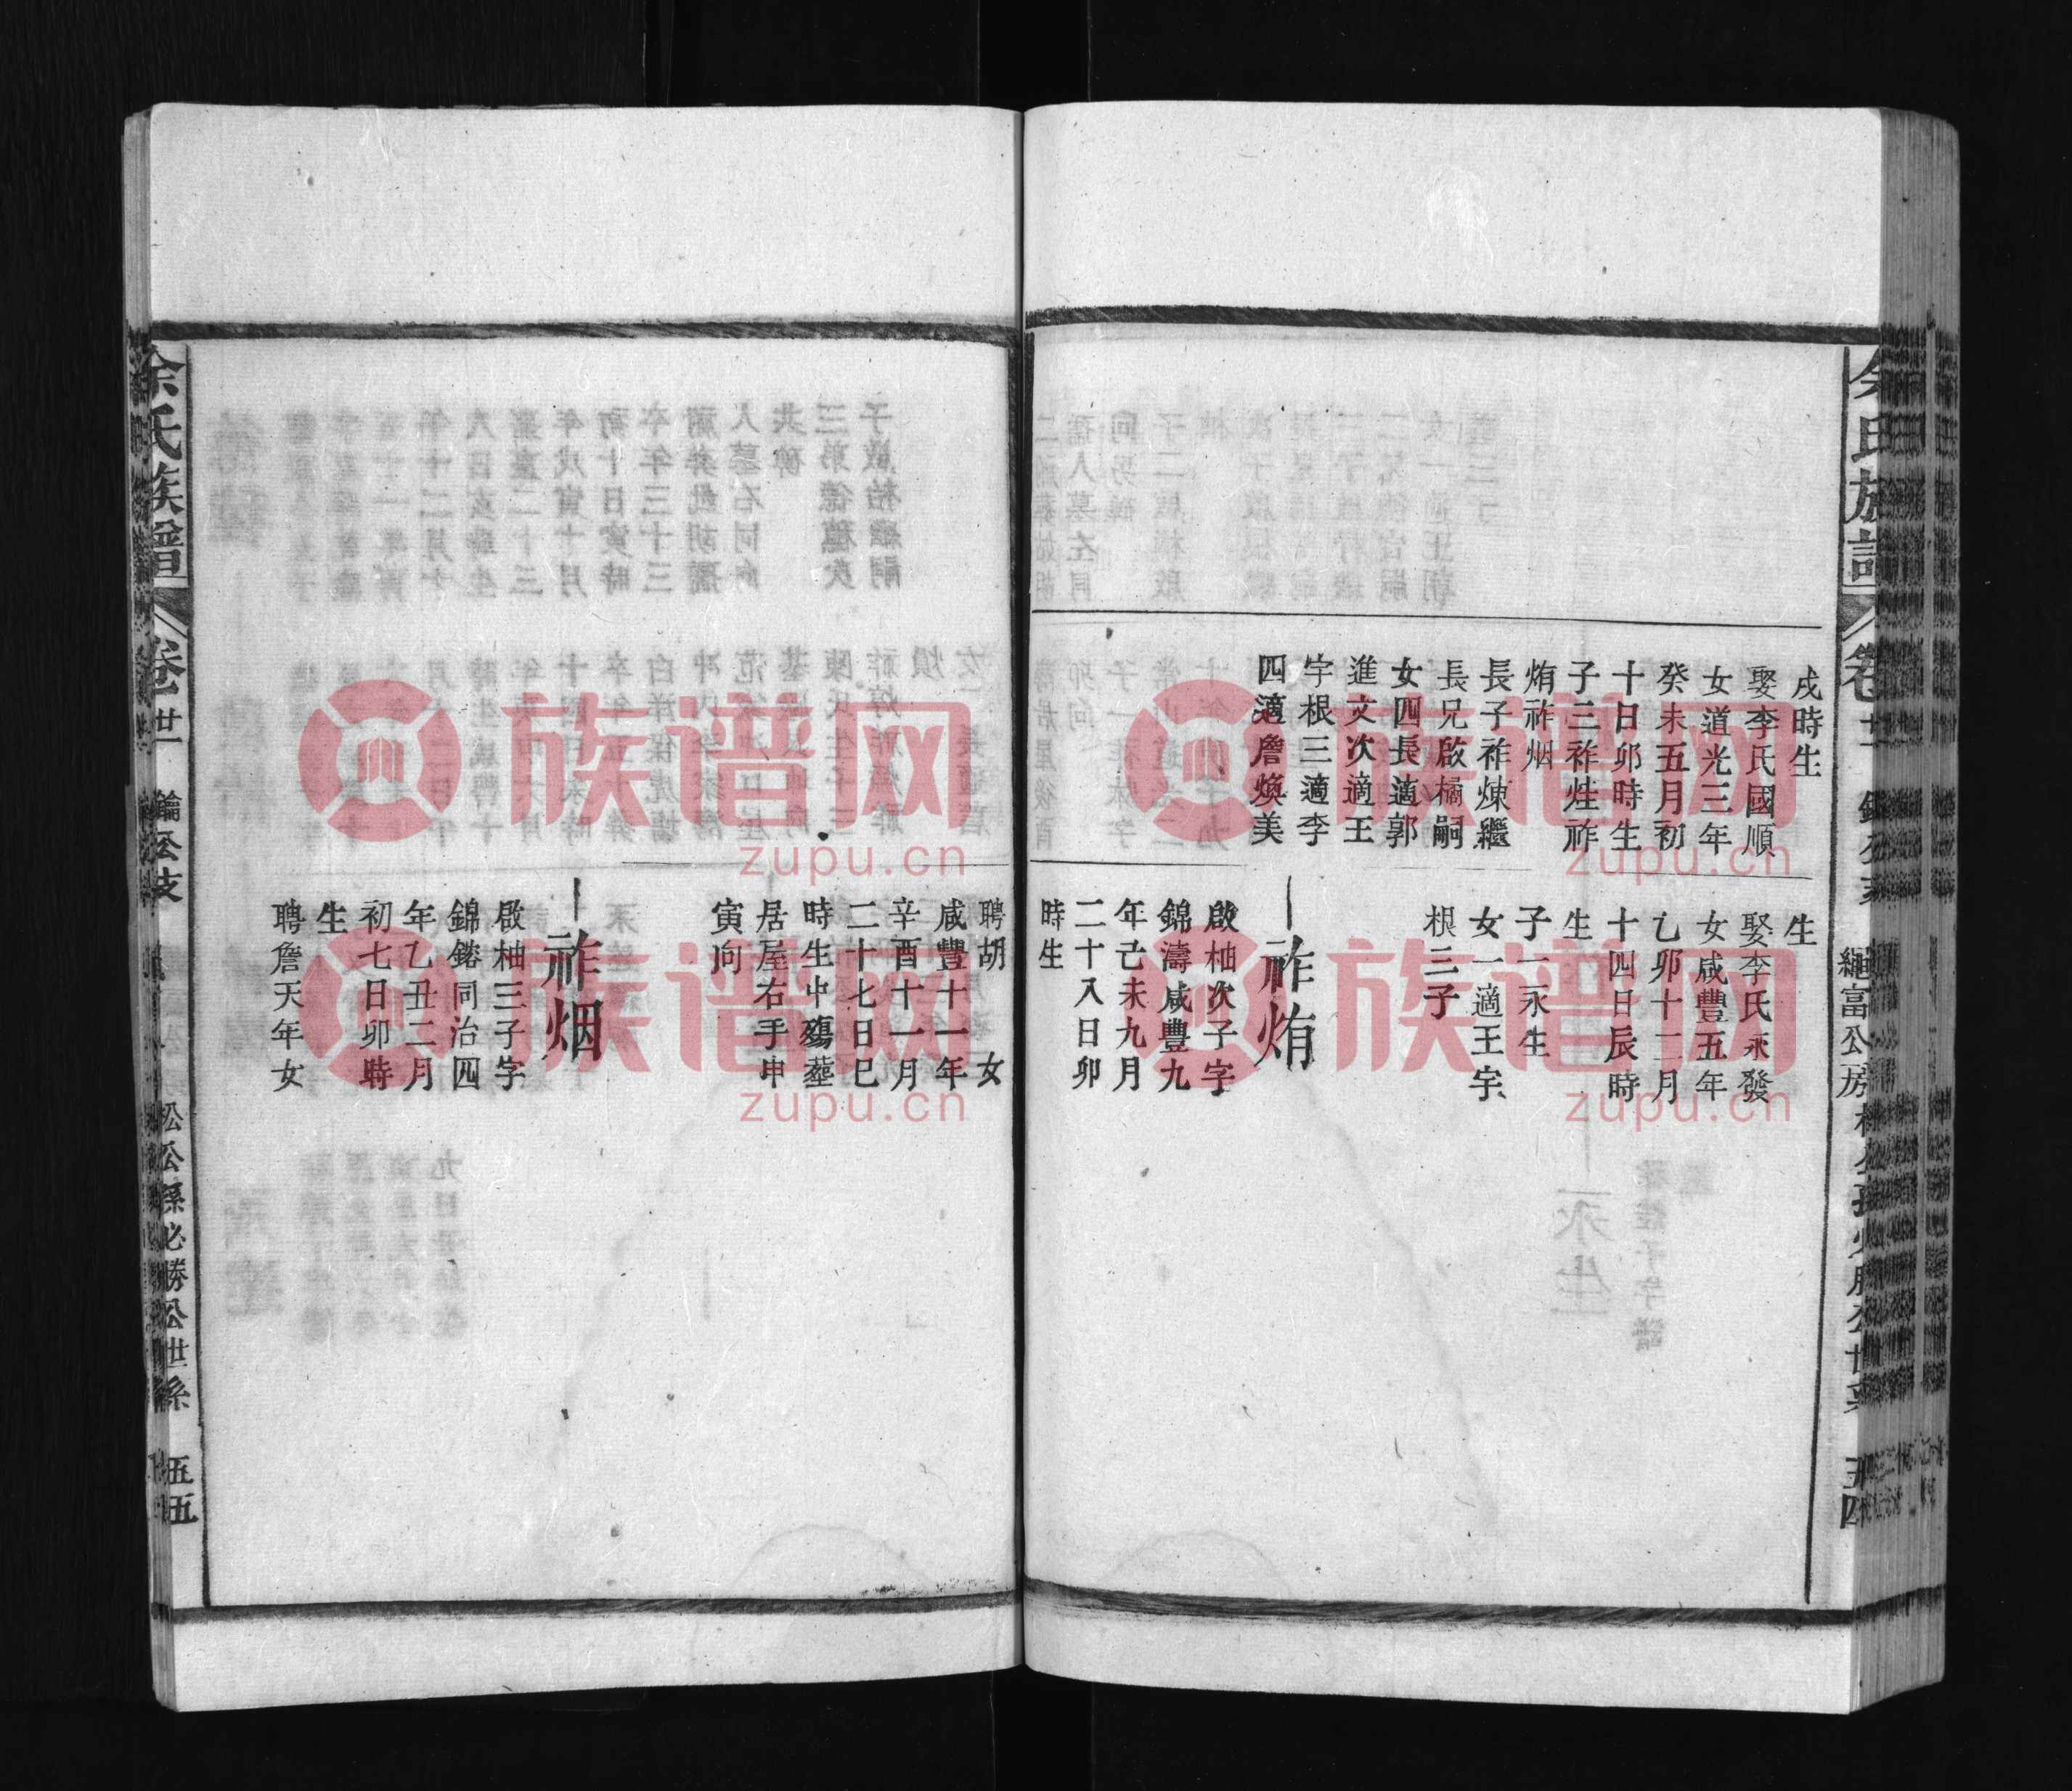 戌時生
娶李氏國順
女道光三年
癸未五月初
十日卯時生
子三祚烓祚
烠祚烟
長子祚煉繼
長兄啟橘嗣
女四長適郭
進文次適王
宇根三適李
四適詹煥美
生
娶李氏永發
女咸豐五年
乙卯十二月
十四日辰時
生
子一永生
女一適王宇
根三子
啟柚次子字
錦濤咸豐九
年己未九月
二十八日卯
時生
聘胡 女
咸豐十一年
辛酉十一月
二十七日巳
時生中殤塟
居屋右手申
寅向
祚烟
啟柚三子字
錦鎔同治四
年乙丑二月
初七日卯時
生
聘詹天年女
余氏族譜 卷廿一 鑰公支 松公孫必勝公世系 五五
繩富公房
族谱网
zupu.cn
族谱网
zupu.cn
族谱网
zupu.cn
族谱网
zupu.cn